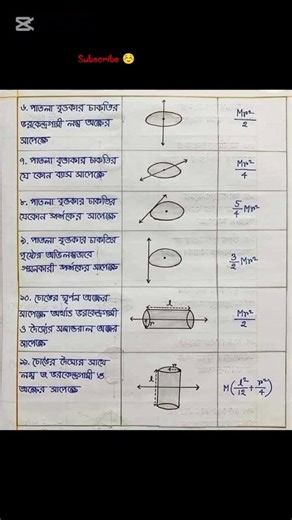 Subscribe
৬. পাতলা বৃত্তাকার চাকতির
ভরকেন্দ্রগামী লম্ব অক্ষের
সাপেক্ষে
Mr²/2
৭. পাতলা বৃত্তাকার চাকতির
যে কোন ব্যাস সাপেক্ষে
Mr²/4
৮. পাতলা বৃত্তাকার চাকতির
যেকোন স্পর্শকের সাপেক্ষে
5/4 Mr²
৯. পাতলা বৃত্তাকার চাকতির
পৃষ্ঠের অভিলম্বভাবে
গমনকারী স্পর্শকের সাপেক্ষে
3/2 Mr²
১০. চোঙের ঘূর্ণন অক্ষের
সাপেক্ষে অর্থাৎ ভরকেন্দ্রগামী
ও দৈর্ঘ্যের সমান্তরাল অক্ষের
সাপেক্ষে
l
r
Mr²/2
১১. চোঙের দৈর্ঘ্যের সাথে
লম্ব ও ভরকেন্দ্রগামী
অক্ষের সাপেক্ষে
r
l
M(l²/12 + r²/4)